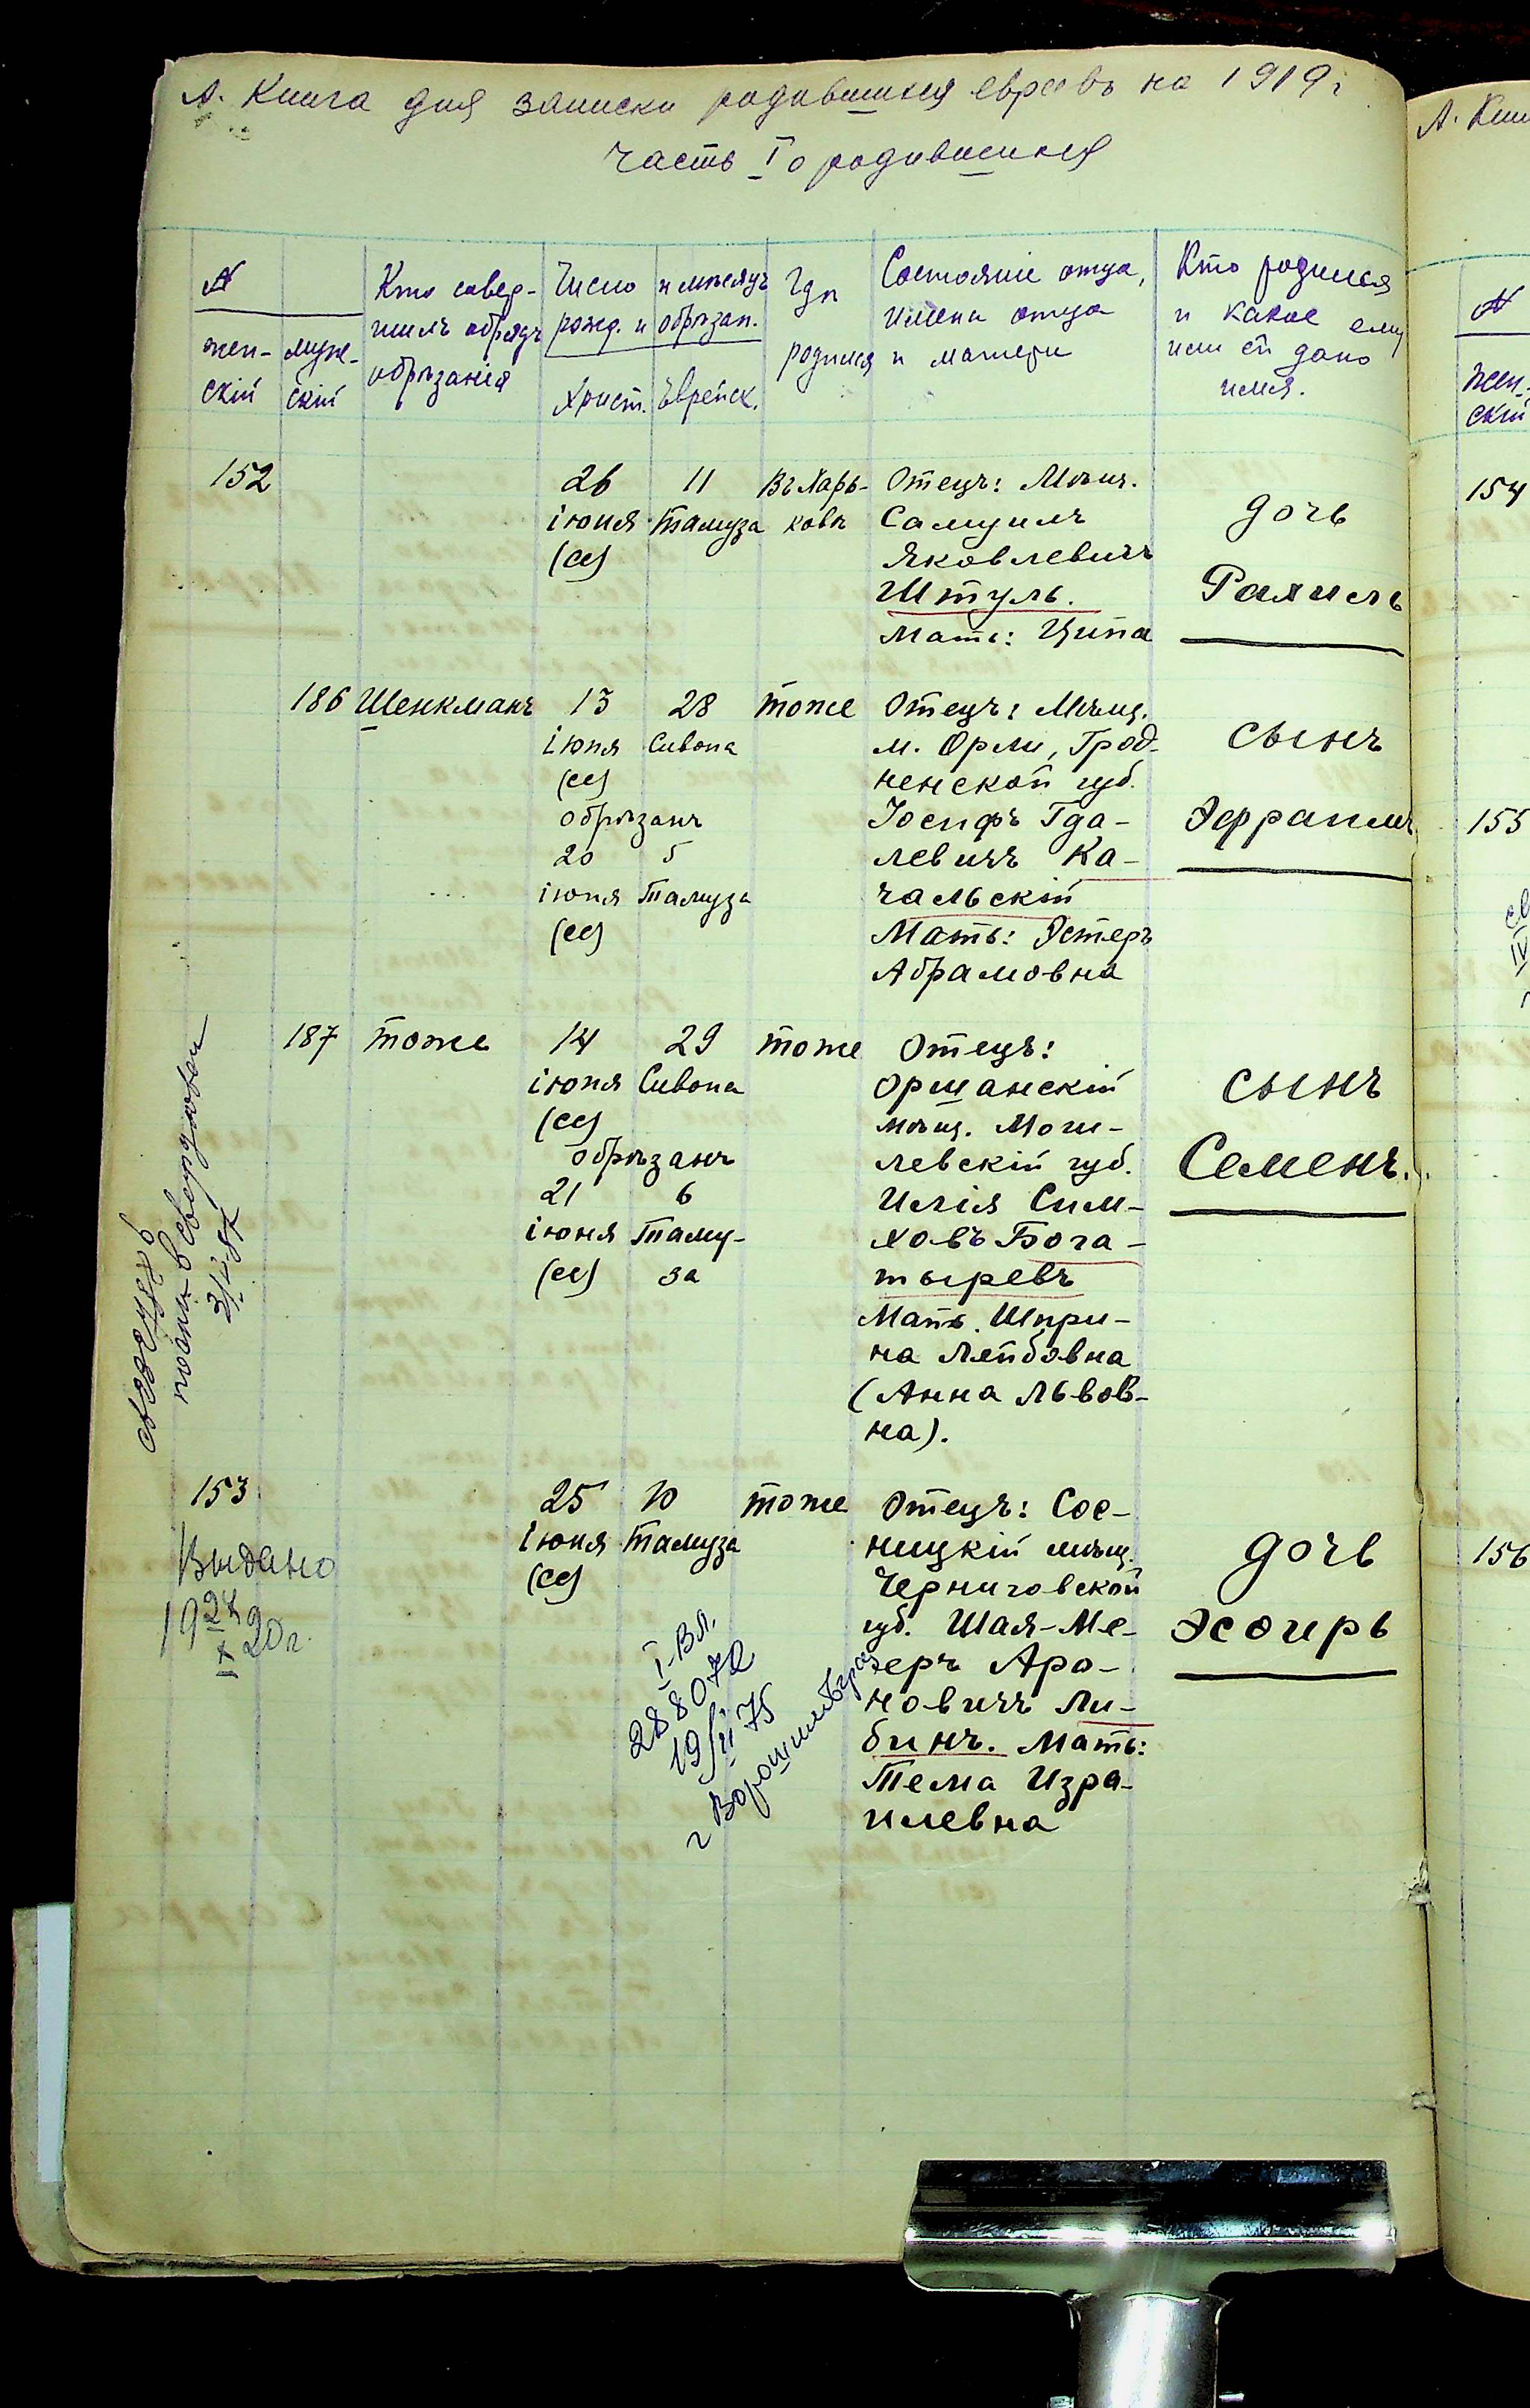 А. Книга для записки родившихся евреевъ на 1919 г
Часть I о родившихся
№
жен-
скій
муже-
скій
Кто совер-
шилъ обрядъ
обрѣзанія
Число и мѣсяцъ
рожд. и обрѣзан.
Христ. Еврейск.
Гдѣ
родился
Состояніе отца,
имена отца
и матери
Кто родился
и какое ему
или ей дано
имя.
152
26 11
іюня Тамуза
(се)
Въ Харь-
ковѣ
Отецъ: Мѣщ.
Самуилъ
Яковлевичъ
Штуль.
Мать: Ципа
дочь
Рахиль
186 Шенкманъ
13 28
іюня Сивона
(се)
обрѣзанъ
20 5
іюня Тамуза
(се)
тоже
Отецъ: Мѣщ.
м. Орли, Грод-
ненской губ.
Іосифъ Гда-
левичъ Ка-
чальскій
Мать: Эстеръ
Абрамовна
сынъ
Эфраимъ
187 тоже
14 29
іюня Сивона
(се)
обрѣзанъ
21 6
іюня Таму-
(се) за
тоже
Отецъ:
Оршанскій
мѣщ. Моги-
левскій губ.
Илія Сим-
ховъ Бога-
тыревъ
Мать. Шпри-
на Лейбовна
(Анна Львов-
на).
сынъ
Семенъ.
153
Выдано
19 24/X 20 г.
25 10
іюня Тамуза
(се)
тоже
Отецъ: Сос-
ницкій мѣщ.
Черниговской
губ. Шая-Ме-
еръ Аро-
новичъ Ли-
бинъ. Мать:
Тема Изра-
илевна
дочь
Эсѳирь
I-ВЛ
288072
19/II 75
г Ворошиловград
А. Кни
№
жен-
скій
154
155
156